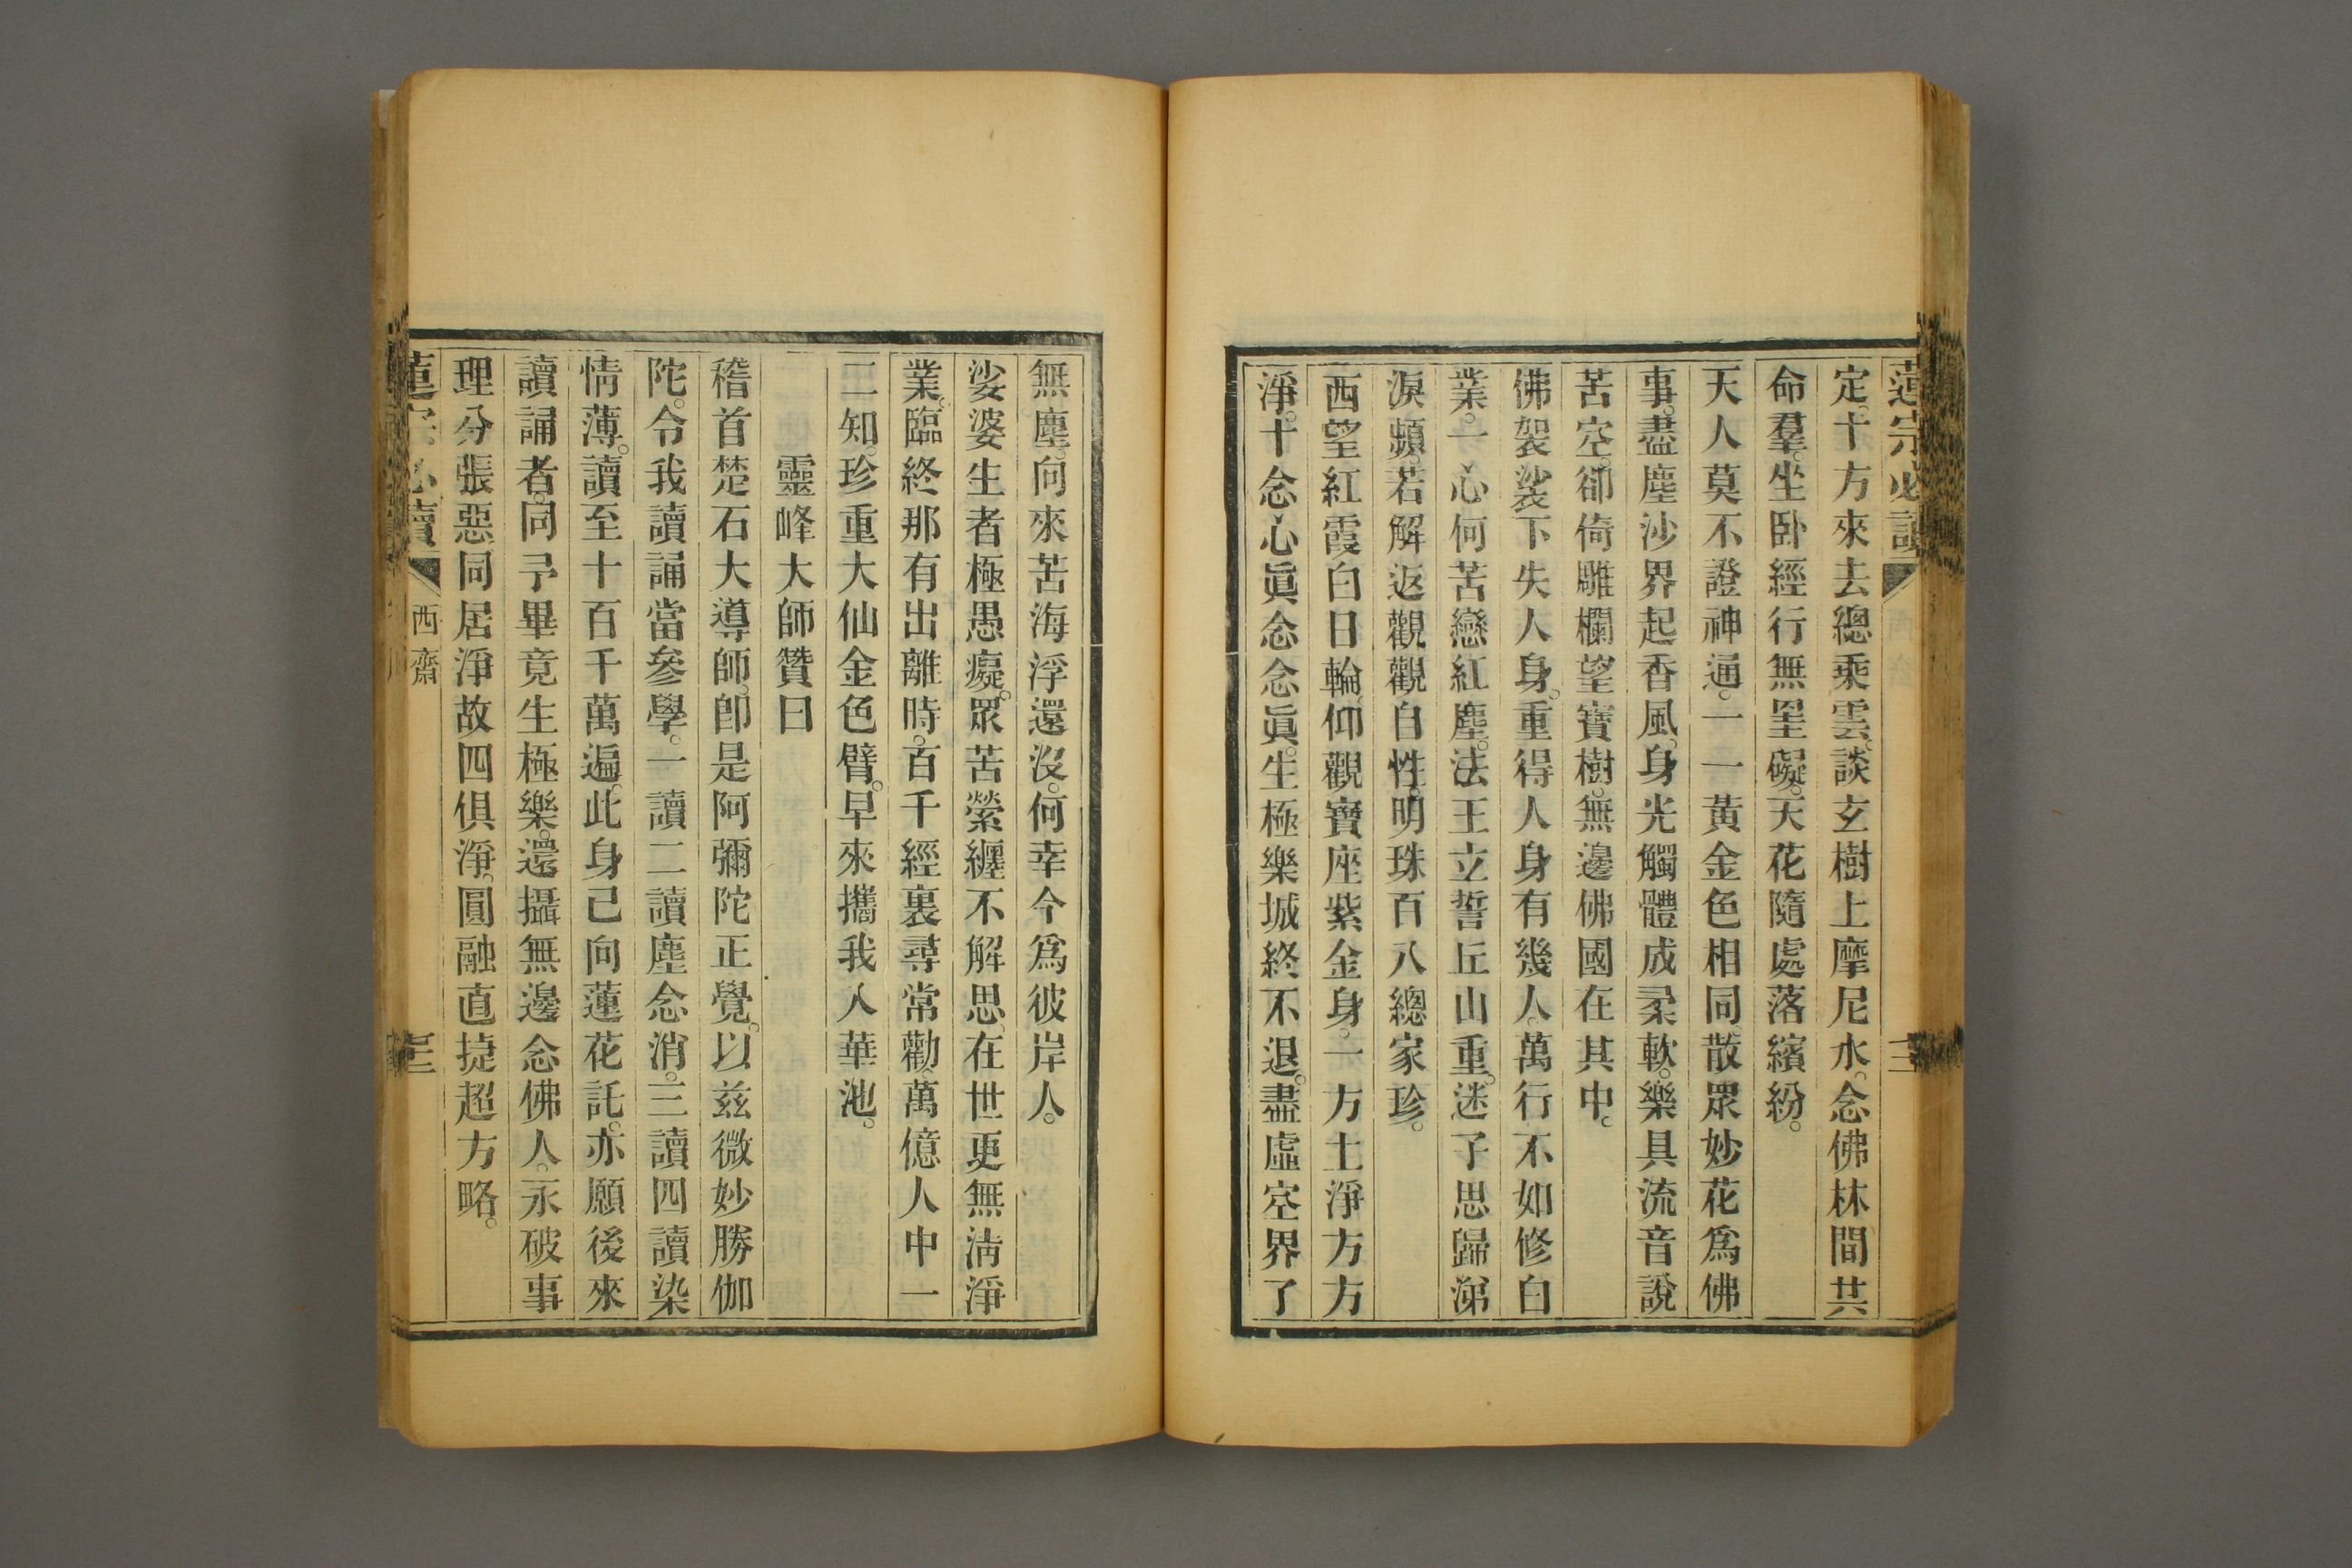 蓮宗必讀
定。十方來去總乘雲。談玄樹上摩尼水。念佛林間共
命羣。坐卧經行無罣礙。天花隨處落繽紛。
天人莫不證神通。一一黃金色相同。散眾妙花爲佛
事。盡塵沙界起香風。身光觸體成柔軟。樂具流音說
苦空。卻倚雕欄望寶樹。無邊佛國在其中。
佛袈裟下失人身。重得人身有幾人。萬行不如修白
業。一心何苦戀紅塵。法王立誓丘山重。迷子思歸涕
淚頻。若解返觀觀自性。明珠百八總家珍。
西望紅霞白日輪。仰觀寶座紫金身。一方土淨方方
淨。十念心眞念念眞。生極樂城終不退。盡虛空界了
無塵。向來苦海浮還沒。何幸今爲彼岸人。
娑婆生者極愚癡。眾苦縈纏不解思。在世更無清淨
業。臨終那有出離時。百千經裏尋常勸。萬億人中一
二知。珍重大仙金色臂。早來攜我入華池。
靈峰大師贊曰
稽首楚石大導師。卽是阿彌陀正覺。以兹微妙勝伽
陀。令我讀誦當參學。一讀二讀塵念消。三讀四讀染
情薄。讀至十百千萬遍。此身已向蓮花託。亦願後來
讀誦者。同予畢竟生極樂。還攝無邊念佛人。永破事
理分張惡。同居淨故四俱淨。圓融直捷超方略。
蓮宗必讀 西齋